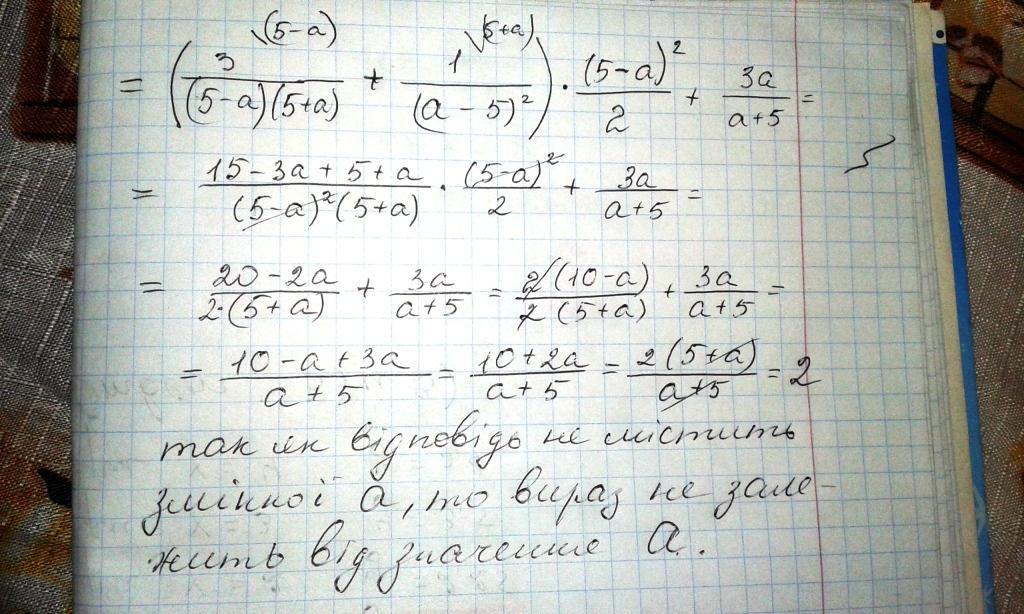 = (3/((5-a)(5+a)) \(5-a) + 1/(a-5)² \(5+a)) · (5-a)²/2 + 3a/(a+5) =
= (15-3a+5+a)/((5-a)²(5+a)) · (5-a)²/2 + 3a/(a+5) =
= (20-2a)/(2·(5+a)) + 3a/(a+5) = 2(10-a)/(2(5+a)) + 3a/(a+5) =
= (10-a+3a)/(a+5) = (10+2a)/(a+5) = 2(5+a)/(a+5) = 2
так як відповідь не містить
змінної a, то вираз не зале-
жить від значение a.